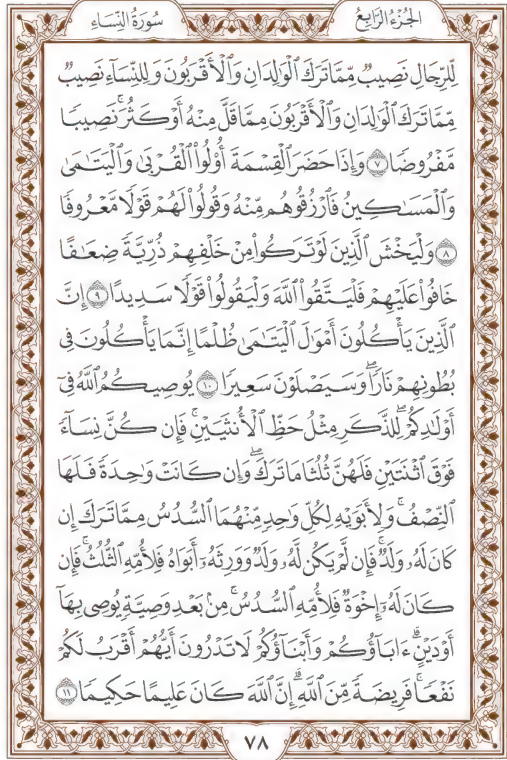 الجُزْءُ الرَّابِعُ سُورَةُ النِّسَاءِ
لِّلرِّجَالِ نَصِيبٌ مِّمَّا تَرَكَ ٱلۡوَٰلِدَانِ وَٱلۡأَقۡرَبُونَ وَلِلنِّسَآءِ نَصِيبٌ
مِّمَّا تَرَكَ ٱلۡوَٰلِدَانِ وَٱلۡأَقۡرَبُونَ مِمَّا قَلَّ مِنۡهُ أَوۡ كَثُرَۚ نَصِيبٗا
مَّفۡرُوضٗا ٧ وَإِذَا حَضَرَ ٱلۡقِسۡمَةَ أُوْلُواْ ٱلۡقُرۡبَىٰ وَٱلۡيَتَٰمَىٰ
وَٱلۡمَسَٰكِينُ فَٱرۡزُقُوهُم مِّنۡهُ وَقُولُواْ لَهُمۡ قَوۡلٗا مَّعۡرُوفٗا
٨ وَلۡيَخۡشَ ٱلَّذِينَ لَوۡ تَرَكُواْ مِنۡ خَلۡفِهِمۡ ذُرِّيَّةٗ ضِعَٰفًا
خَافُواْ عَلَيۡهِمۡ فَلۡيَتَّقُواْ ٱللَّهَ وَلۡيَقُولُواْ قَوۡلٗا سَدِيدًا ٩ إِنَّ
ٱلَّذِينَ يَأۡكُلُونَ أَمۡوَٰلَ ٱلۡيَتَٰمَىٰ ظُلۡمًا إِنَّمَا يَأۡكُلُونَ فِي
بُطُونِهِمۡ نَارٗاۖ وَسَيَصۡلَوۡنَ سَعِيرٗا ١٠ يُوصِيكُمُ ٱللَّهُ فِيٓ
أَوۡلَٰدِكُمۡۖ لِلذَّكَرِ مِثۡلُ حَظِّ ٱلۡأُنثَيَيۡنِۚ فَإِن كُنَّ نِسَآءٗ
فَوۡقَ ٱثۡنَتَيۡنِ فَلَهُنَّ ثُلُثَا مَا تَرَكَۖ وَإِن كَانَتۡ وَٰحِدَةٗ فَلَهَا
ٱلنِّصۡفُۚ وَلِأَبَوَيۡهِ لِكُلِّ وَٰحِدٖ مِّنۡهُمَا ٱلسُّدُسُ مِمَّا تَرَكَ إِن
كَانَ لَهُۥ وَلَدٞۚ فَإِن لَّمۡ يَكُن لَّهُۥ وَلَدٞ وَوَرِثَهُۥٓ أَبَوَاهُ فَلِأُمِّهِ ٱلثُّلُثُۚ فَإِن
كَانَ لَهُۥٓ إِخۡوَةٞ فَلِأُمِّهِ ٱلسُّدُسُۚ مِنۢ بَعۡدِ وَصِيَّةٖ يُوصِي بِهَآ
أَوۡ دَيۡنٍۗ ءَابَآؤُكُمۡ وَأَبۡنَآؤُكُمۡ لَا تَدۡرُونَ أَيُّهُمۡ أَقۡرَبُ لَكُمۡ
نَفۡعٗاۚ فَرِيضَةٗ مِّنَ ٱللَّهِۗ إِنَّ ٱللَّهَ كَانَ عَلِيمًا حَكِيمٗا ١١
٧٨